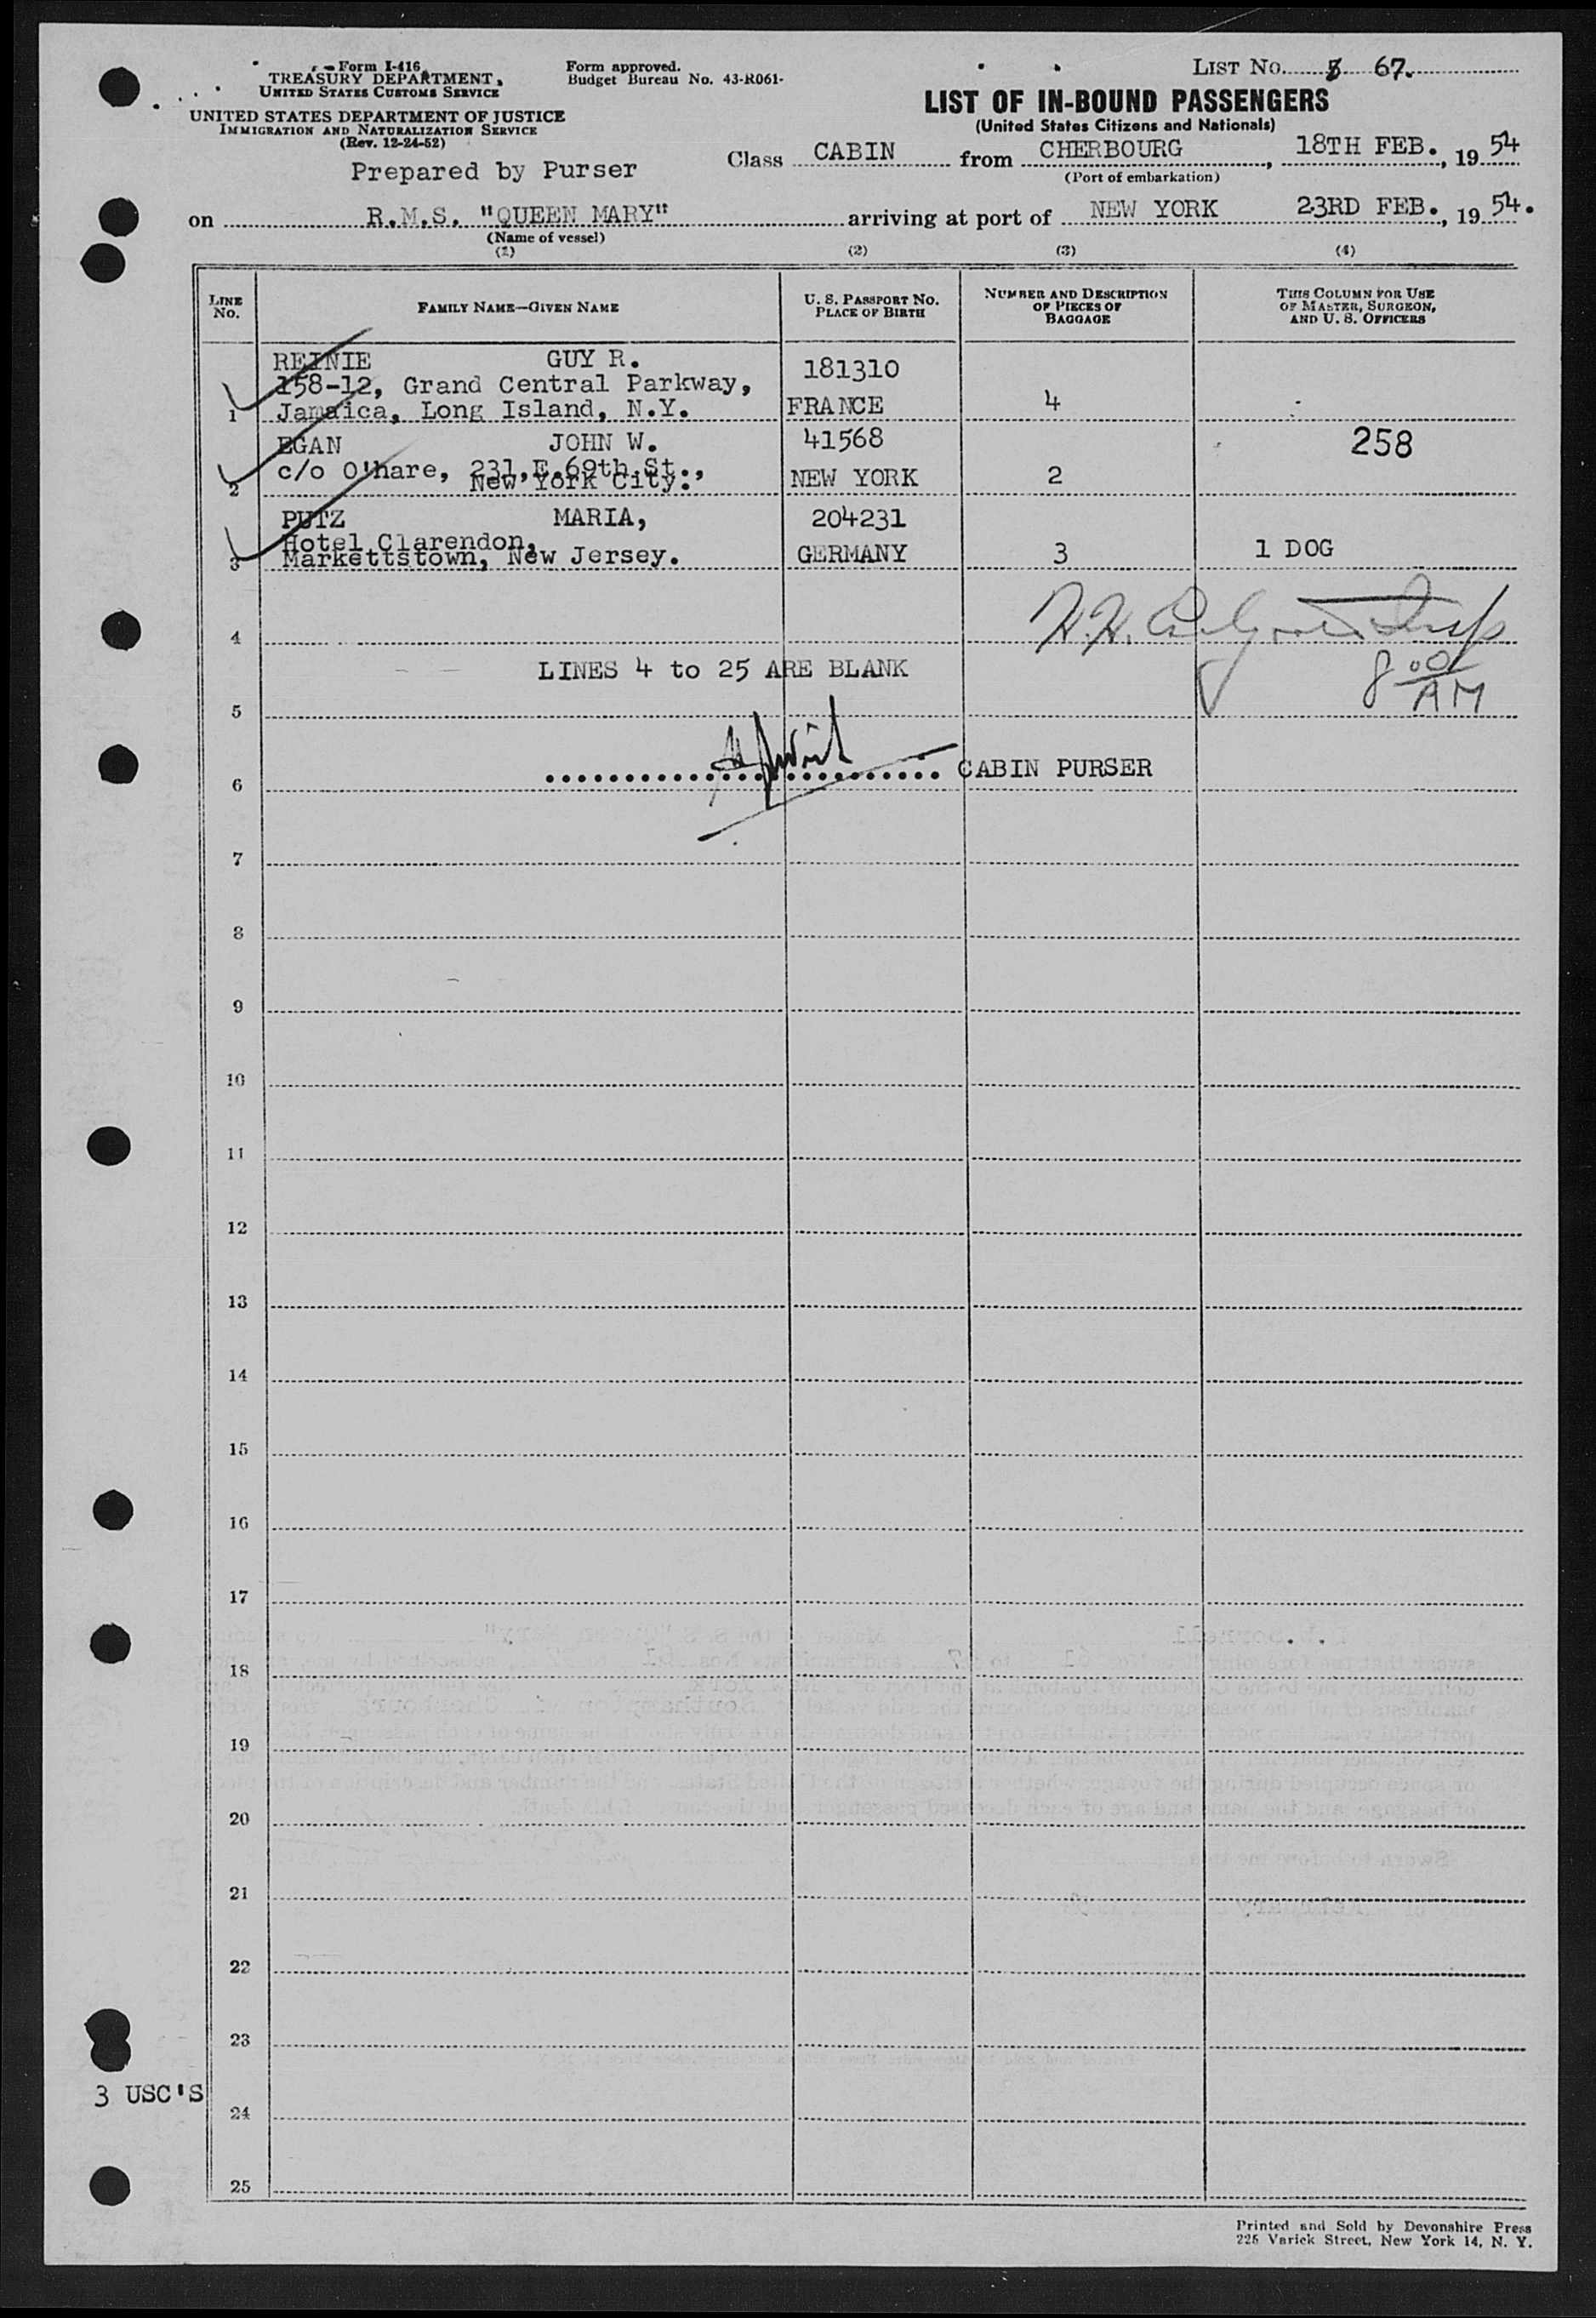 Form I-416
TREASURY DEPARTMENT,
UNITED STATES CUSTOMS SERVICE
UNITED STATES DEPARTMENT OF JUSTICE
IMMIGRATION AND NATURALIZATION SERVICE
(Rev. 12-24-52)
Prepared by Purser
Form approved.
Budget Bureau No. 43-R061-
LIST No. 67.
LIST OF IN-BOUND PASSENGERS
(United States Citizens and Nationals)
Class CABIN from CHERBOURG, 18TH FEB., 1954
(Port of embarkation)
on R.M.S. "QUEEN MARY" arriving at port of NEW YORK 23RD FEB., 1954.
(Name of vessel)
(1) (2) (3) (4)
LINE No. FAMILY NAME—GIVEN NAME U. S. PASSPORT No. PLACE OF BIRTH NUMBER AND DESCRIPTION OF PIECES OF BAGGAGE THIS COLUMN FOR USE OF MASTER, SURGEON, AND U. S. OFFICERS
REINIE GUY R. 181310
158-12, Grand Central Parkway,
1 Jamaica, Long Island, N.Y. FRANCE 4
EGAN JOHN W. 41568 258
c/o O'hare, 231,E.69th.St.,
2 New York City. NEW YORK 2
PUTZ MARIA, 204231
Hotel Clarendon,
3 Markettstown, New Jersey. GERMANY 3 1 DOG
4
LINES 4 to 25 ARE BLANK
8 00 AM
5
CABIN PURSER
6
7
8
9
10
11
12
13
14
15
16
17
18
19
20
21
22
23
3 USC'S
24
25
Printed and Sold by Devonshire Press
225 Varick Street, New York 14, N. Y.